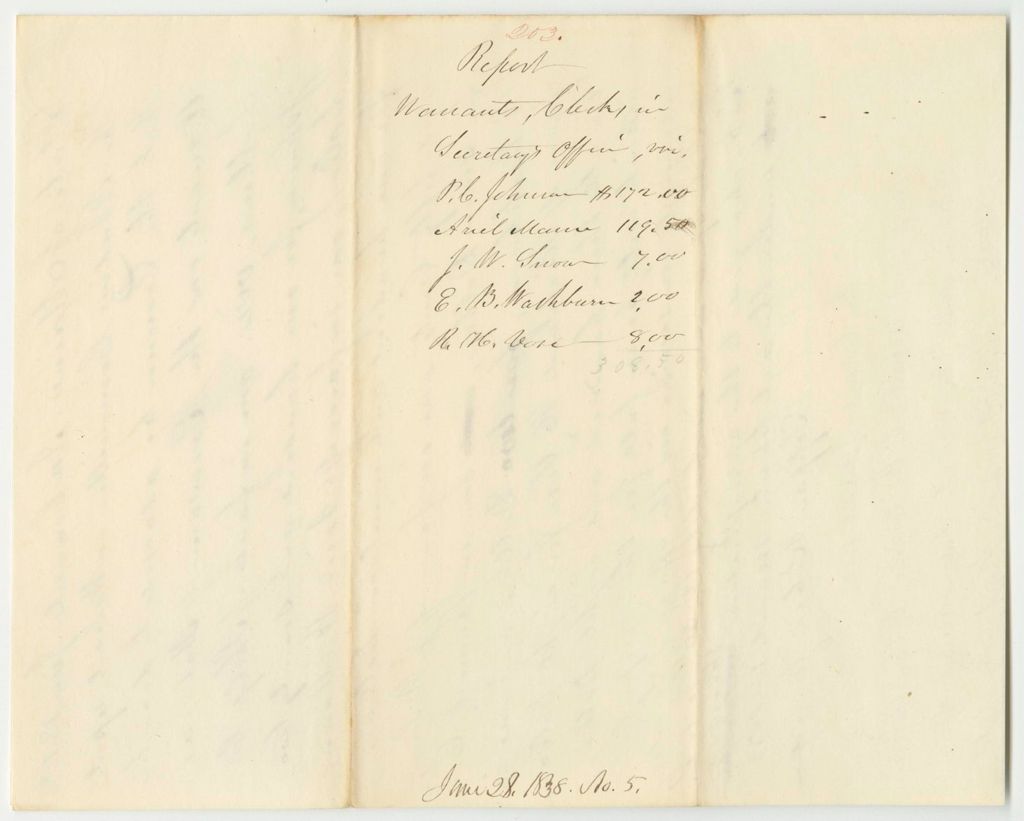 203.
Report
Warrants, Clerks in
Secretary's Office, viz.
P. C. Johnson $172.00
Ariel Mann 119.50
J. W. Snow 7.00
E. B. Washburn 2,00
R. H. Vose 8,00
308,50
June 28. 1838. No. 5.